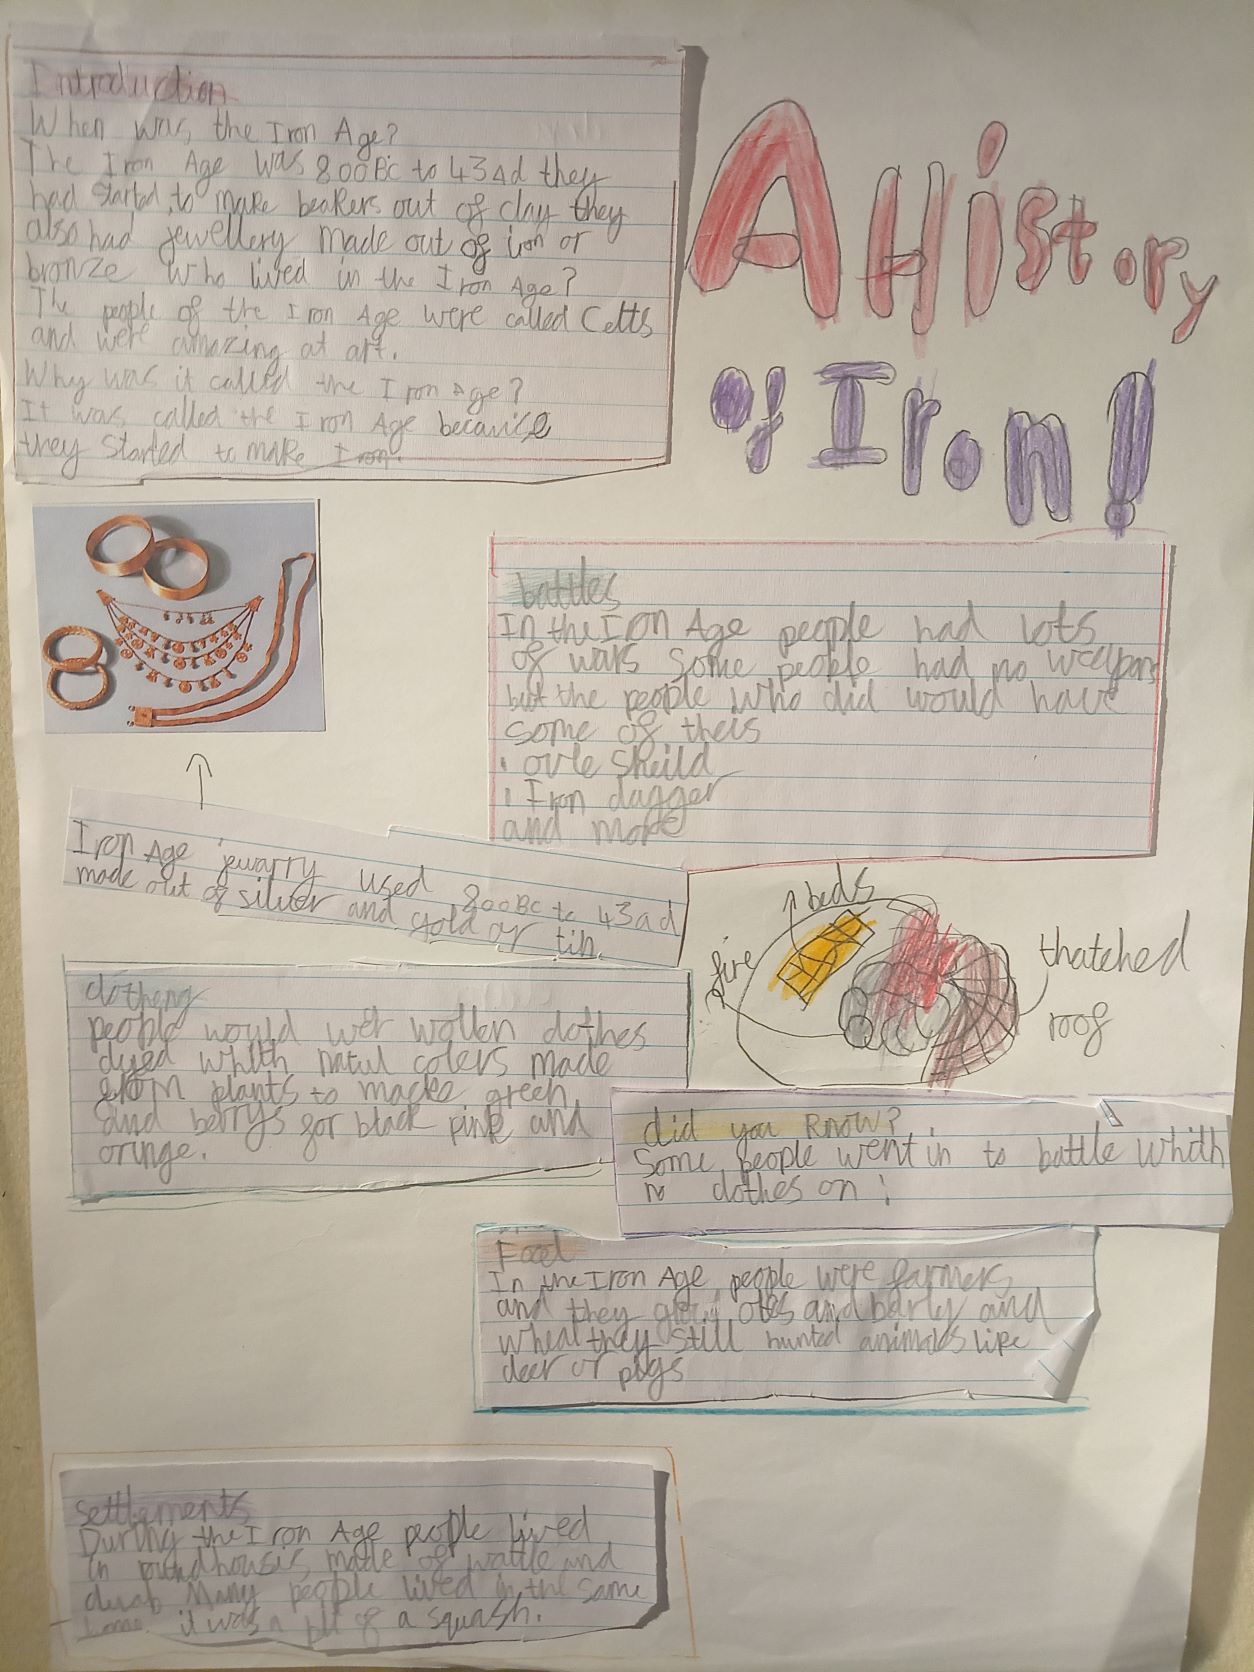 Introduction
When was, the Iron Age?
The Iron Age was 800BC to 43Ad they
had started, to make beakers out of clay they
also had jewellery made out of iron or
bronze who lived in the Iron Age?
The people of the Iron Age were called Celts
and were amazing at art.
Why was it called the Iron Age?
It was called the Iron Age because
they started to make Iron.
A History
of Iron!
battles
In the Iron Age people had lots
of wars some people had no weapons
but the people who did would have
some of theis
• ovle sheild
• Iron dagger
and more
Iron Age jewarry used 800BC to 43ad
made out of silver and gold or tin.
beds
fire
thatched
roof
clotheng
people would wer wollen clothes
dyed whith natul colers made
from plants to macke green
and berrys for black pink and
oringe.
did you know?
Some people went in to battle whith
no clothes on !
Food
In the Iron Age people were farmers
and they grow otes and barly and
wheat they still hunted animals like
deer or pigs
settlements
During the Iron Age people lived
in roundhouses, made of wattle and
duab Many people lived in the same
home. it was a bit of a squash.